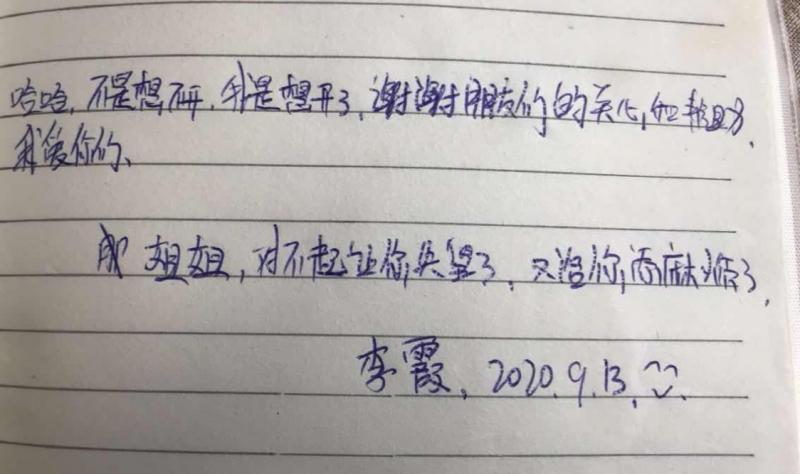 哈哈,不是想不开,我是想开了,谢谢朋友们的关心,和帮助,
我爱你们、
成姐姐,对不起让你失望了,又给你,添麻烦了,
李霞,2020.9.13.